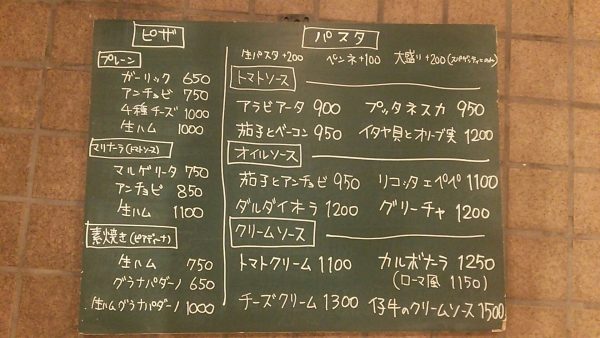 ピザ
プレーン
ガーリック 650
アンチョビ 750
4種チーズ 1000
生ハム 1000
マリナーラ(トマトソース)
マルゲリータ 750
アンチョビ 850
生ハム 1100
素焼き(ピアディーナ)
生ハム 750
グラナパダーノ 650
生ハムグラナパダーノ 1000
パスタ
生パスタ+200 ペンネ+100 大盛り+200
トマトソース
アラビアータ 900 プッタネスカ 950
茄子とベーコン 950 イタヤ貝とオリーブ実 1200
オイルソース
茄子とアンチョビ 950 リコッタエペペ 1100
ダルダイオーラ 1200 グリーチャ 1200
クリームソース
トマトクリーム 1100 カルボナーラ 1250
(ローマ風 1150)
チーズクリーム 1300 仔牛のクリームソース 1500